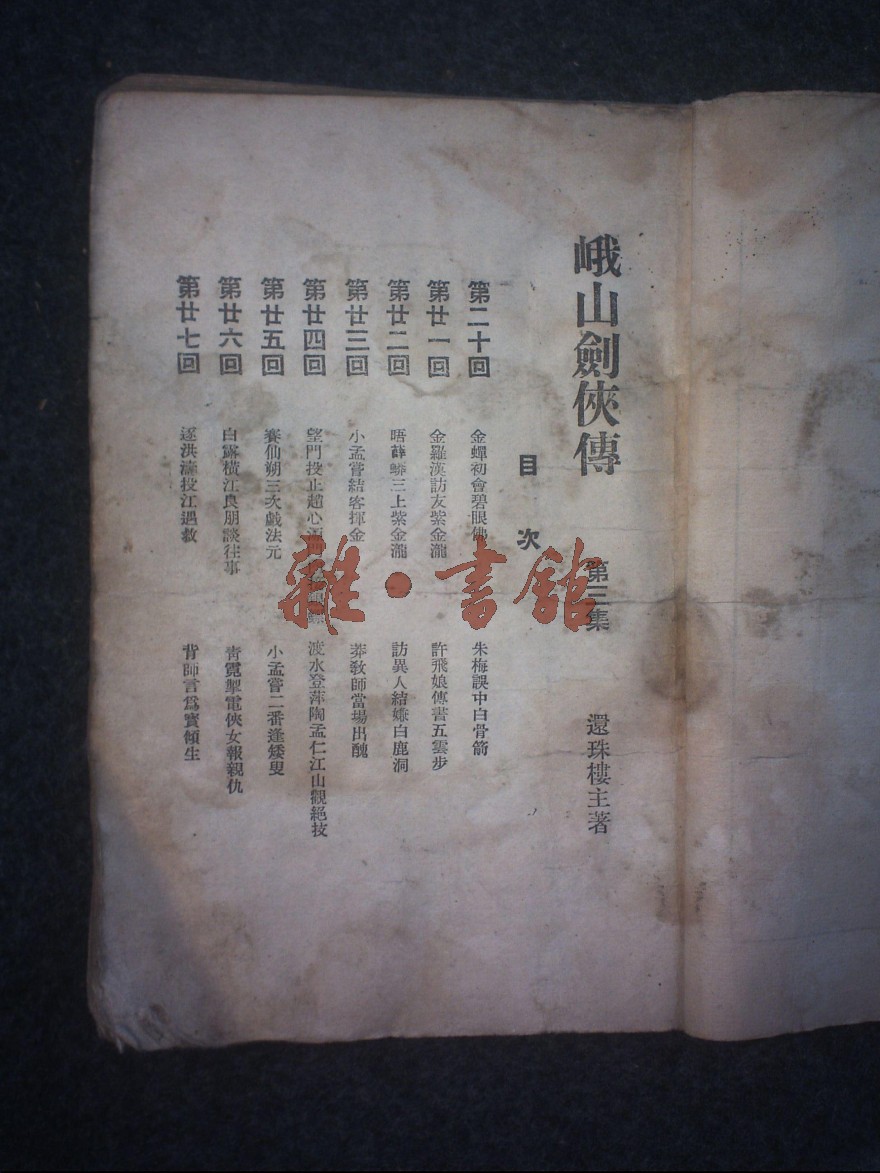 峨山劍俠傳 第三集 還珠樓主著
目次
第二十回 金蟬初會碧眼佛 朱梅誤中白骨箭
第廿一回 金羅漢訪友紫金瀧 許飛娘傳書五雲步
第廿二回 晤薛蟒三上紫金瀧 訪異人結嫌白鹿洞
第廿三回 小孟嘗結客揮金 莽教師當場出醜
第廿四回 望門投止趙心源 渡水登萍陶孟仁江山觀絕技
第廿五回 賽仙朔三次戲法元 小孟嘗二番逢矮叟
第廿六回 白露橫江良朋談往事 青霓掣電俠女報親仇
第廿七回 逐洪濤投江遇救 背師言為寶傾生
雜·書館